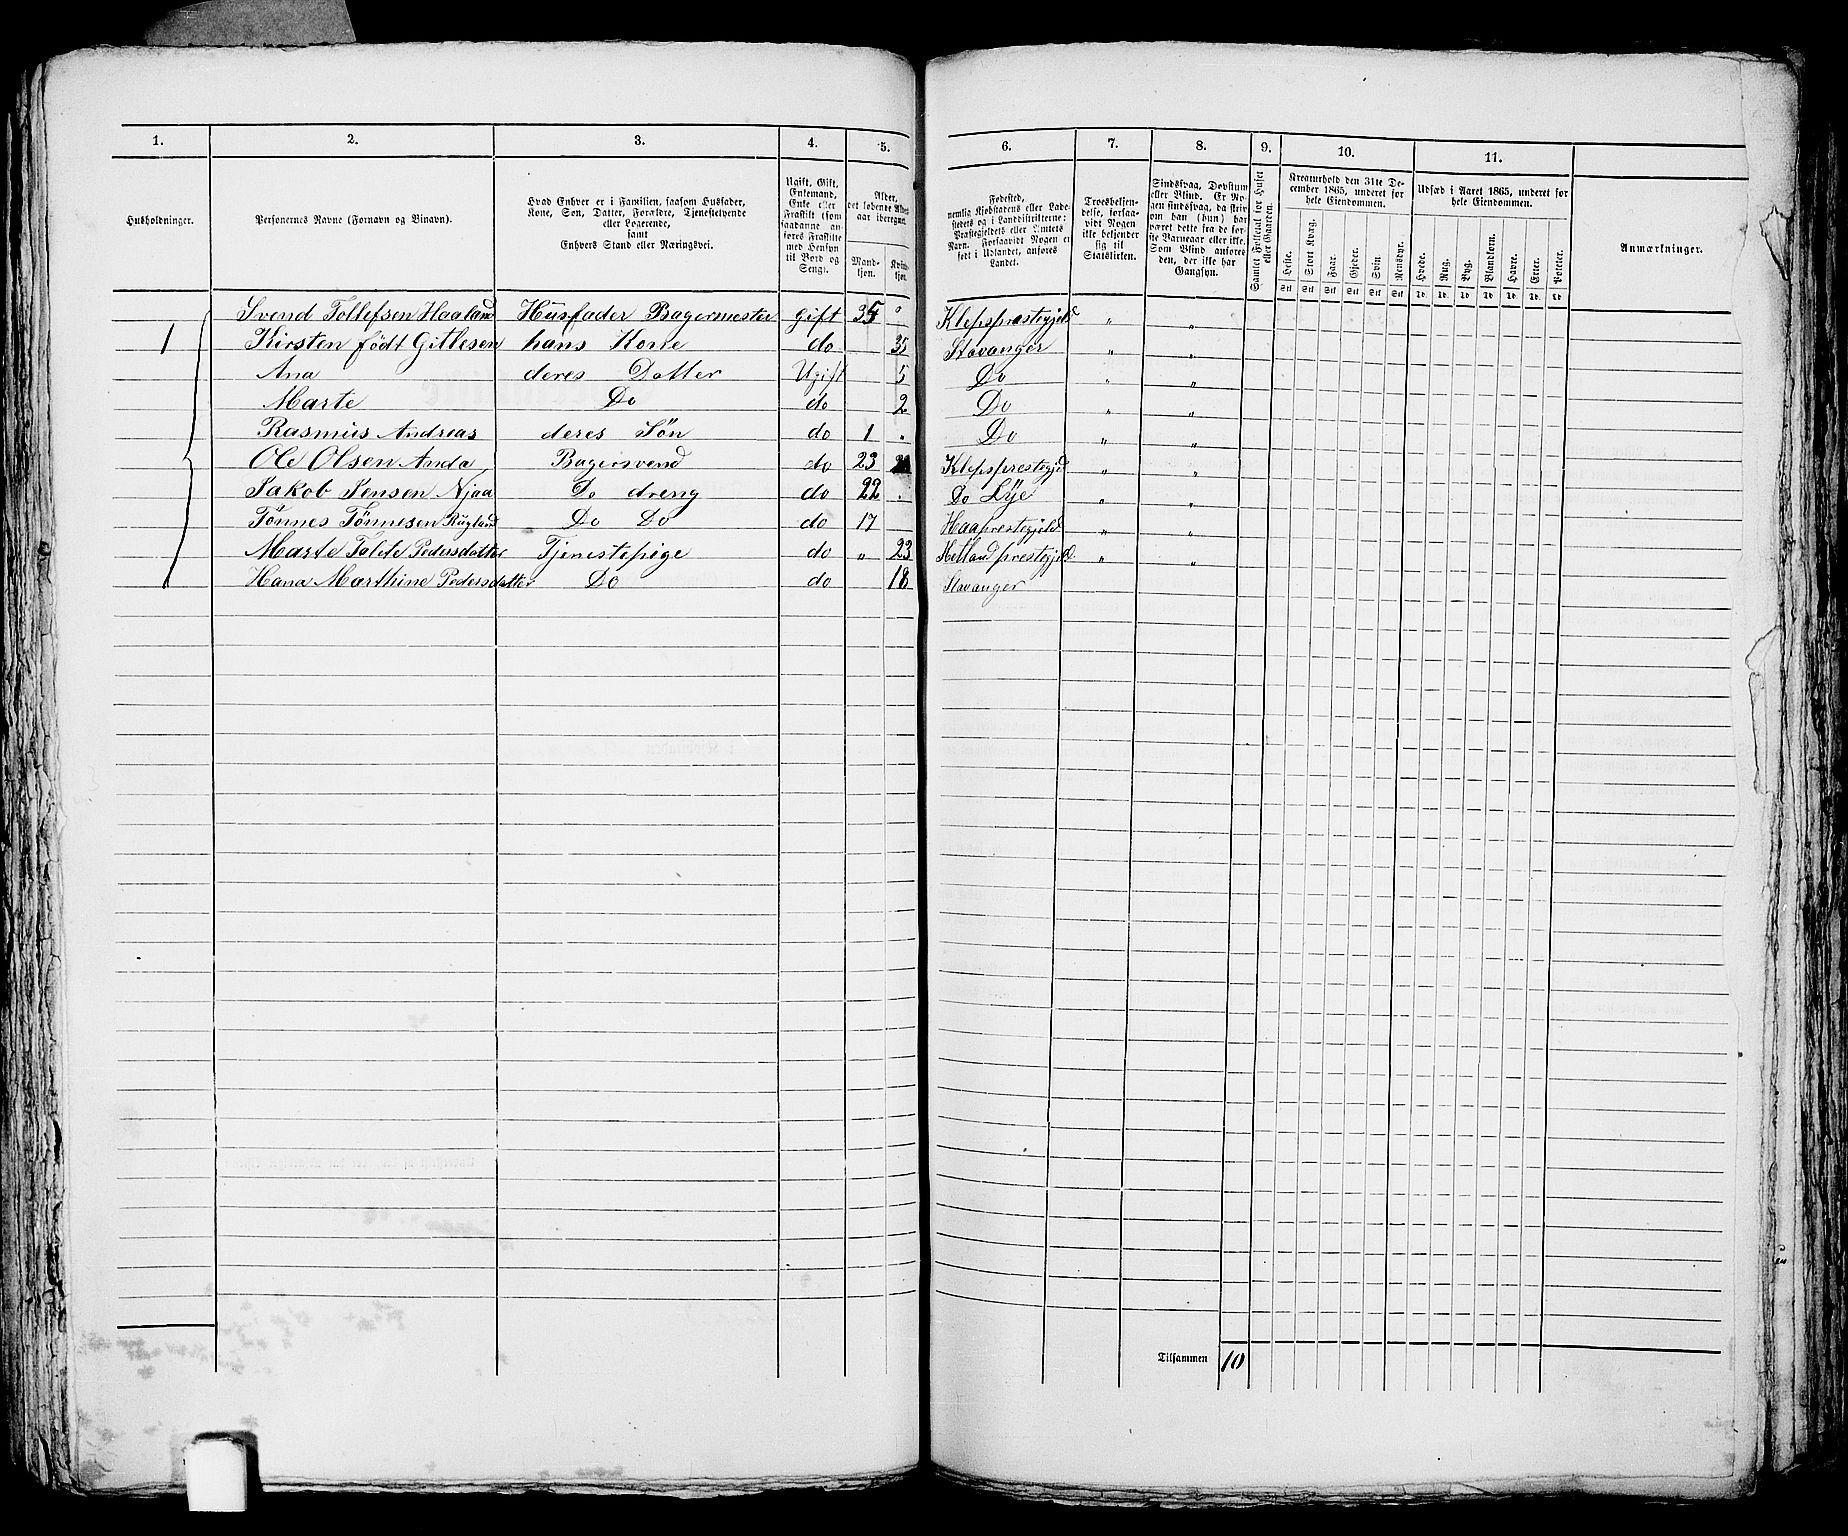 1. 2. 3. 4. 5. 6. 7. 8. 9. 10. 11.
Husholdninger.
Personernes Navne (Fornavn og Binavn).
Hvad Enhver er i Familien, saasom Husfader,
Kone, Søn, Datter, Forældre, Tjenestydende
eller Logerende,
samt
Enhvers Stand eller Næringsvei.
Ugift, Gift,
Enkemand,
Enke eller
Fraskilt (som
saadanne an-
føres Fraskilte
med Hensyn
til Bord og
Seng).
Alder,
det løbende Alders-
aar iberegnet.
Mand-
kjøn.
Kvin-
kjøn.
Fødested,
nemlig Kjøbstadens eller Lade-
stedets og i Landdistrikterne:
Præstegjeldets eller Amtets
Navn. Forsaavidt Nogen er
født i Udlandet, anføres
Landet.
Troesbekjen-
delse, forsaa-
vidt Nogen
ikke bekjender
sig til
Statskirken.
Sindssvag, Døvstum
eller Blind. Er No-
gen sindssvag, da skri-
ves om han (hun) har
været dette fra de før-
ste Barneaar eller ikke.
Som Blind anføres
den, der ikke har
Gangsyn.
Samlet Folketal for Huset
eller Gaarden.
Kreaturhold den 31te De-
cember 1865, underet for
hele Eiendommen.
Heste. Stort Kvæg. Faar. Gjeder. Svin. Rensdyr.
Stk Stk Stk Stk Stk Stk
Udsæd i Aaret 1865, underet for
hele Eiendommen.
Hvede. Rug. Byg. Blandkorn. Havre. Erter. Poteter.
Td. Td. Td. Td. Td. Td. Td.
Anmærkninger.
Svend Tollefsen Haaland Husfader Bagermester gift 35 " Klepsprestegjeld " "
1 Kirsten født Gitlesen hans Kone do 35 Stavanger " "
Ana deres Datter Ugift 5 Do " "
Marte Do do 2 Do " "
Rasmus Andreas deres Søn do 1 " Do " "
Ole Olsen Anda Bagersvend do 23 Klepsprestegjd " "
Jakob Jensen Njaa Do dreng do 22 " Do Lye " "
Tønnes Tønnesen Rugland Do Do do 17 Haaprestegjeld " "
Marte Tolete Pedersdatter Tjenestepige do " 23 Hetland prestegjeld " "
Hana Marthine Pedersdatter Do do 18 Stavanger
Tilsammen 10